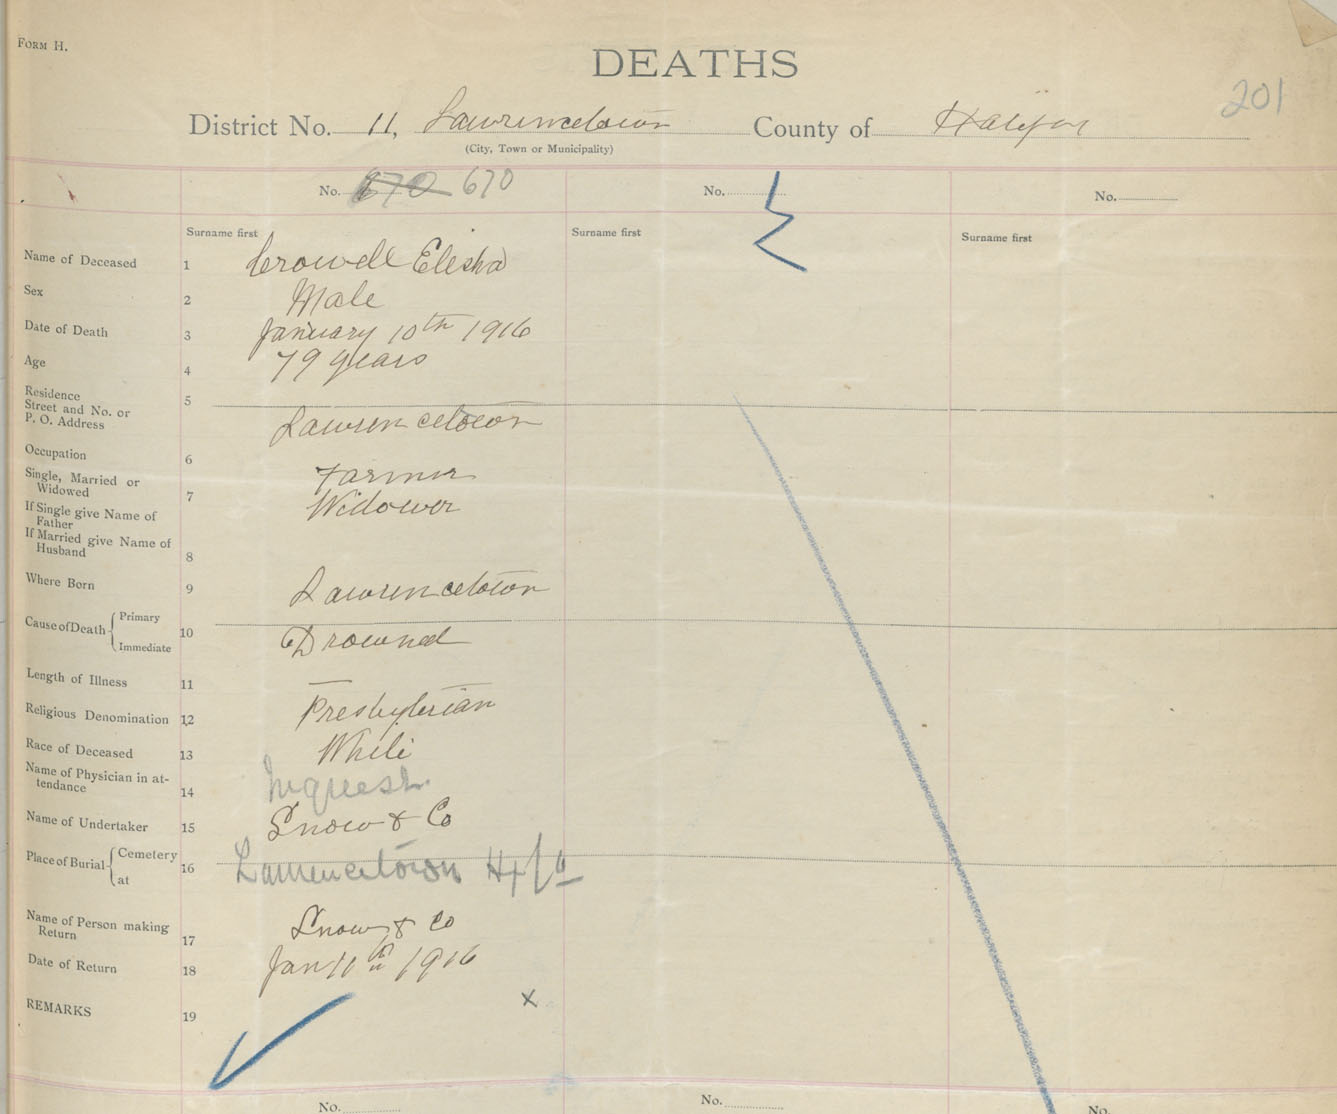 FORM H.
DEATHS
201
District No. 11, Lawrencetown County of Halifax
(City, Town or Municipality)
No. 670 670 No. No.
Surname first Surname first Surname first
Name of Deceased 1 Crowell Elisha
Sex 2 Male
Date of Death 3 January 10th 1916
Age 4 79 years
Residence
Street and No. or
P. O. Address 5 Lawrencetown
Occupation 6 Farmer
Single, Married or
Widowed 7 Widower
If Single give Name of
Father
If Married give Name of
Husband 8
Where Born 9 Lawrencetown
Cause of Death { Primary
Immediate 10 Drowned
Length of Illness 11 —
Religious Denomination 12 Presbyterian
Race of Deceased 13 White
Name of Physician in at-
tendance 14 Inquest.
Name of Undertaker 15 Snow & Co
Place of Burial { Cemetery
at 16 Lawrencetown Hfx
Name of Person making
Return 17 Snow & Co
Date of Return 18 Jan 11th 1916
REMARKS 19 x
No. No. No.